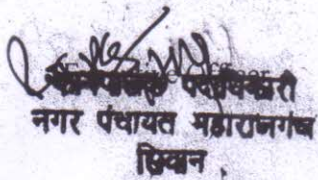 कार्यपालक पदाधिकारी
नगर पंचायत महाराजगंज
सिवान